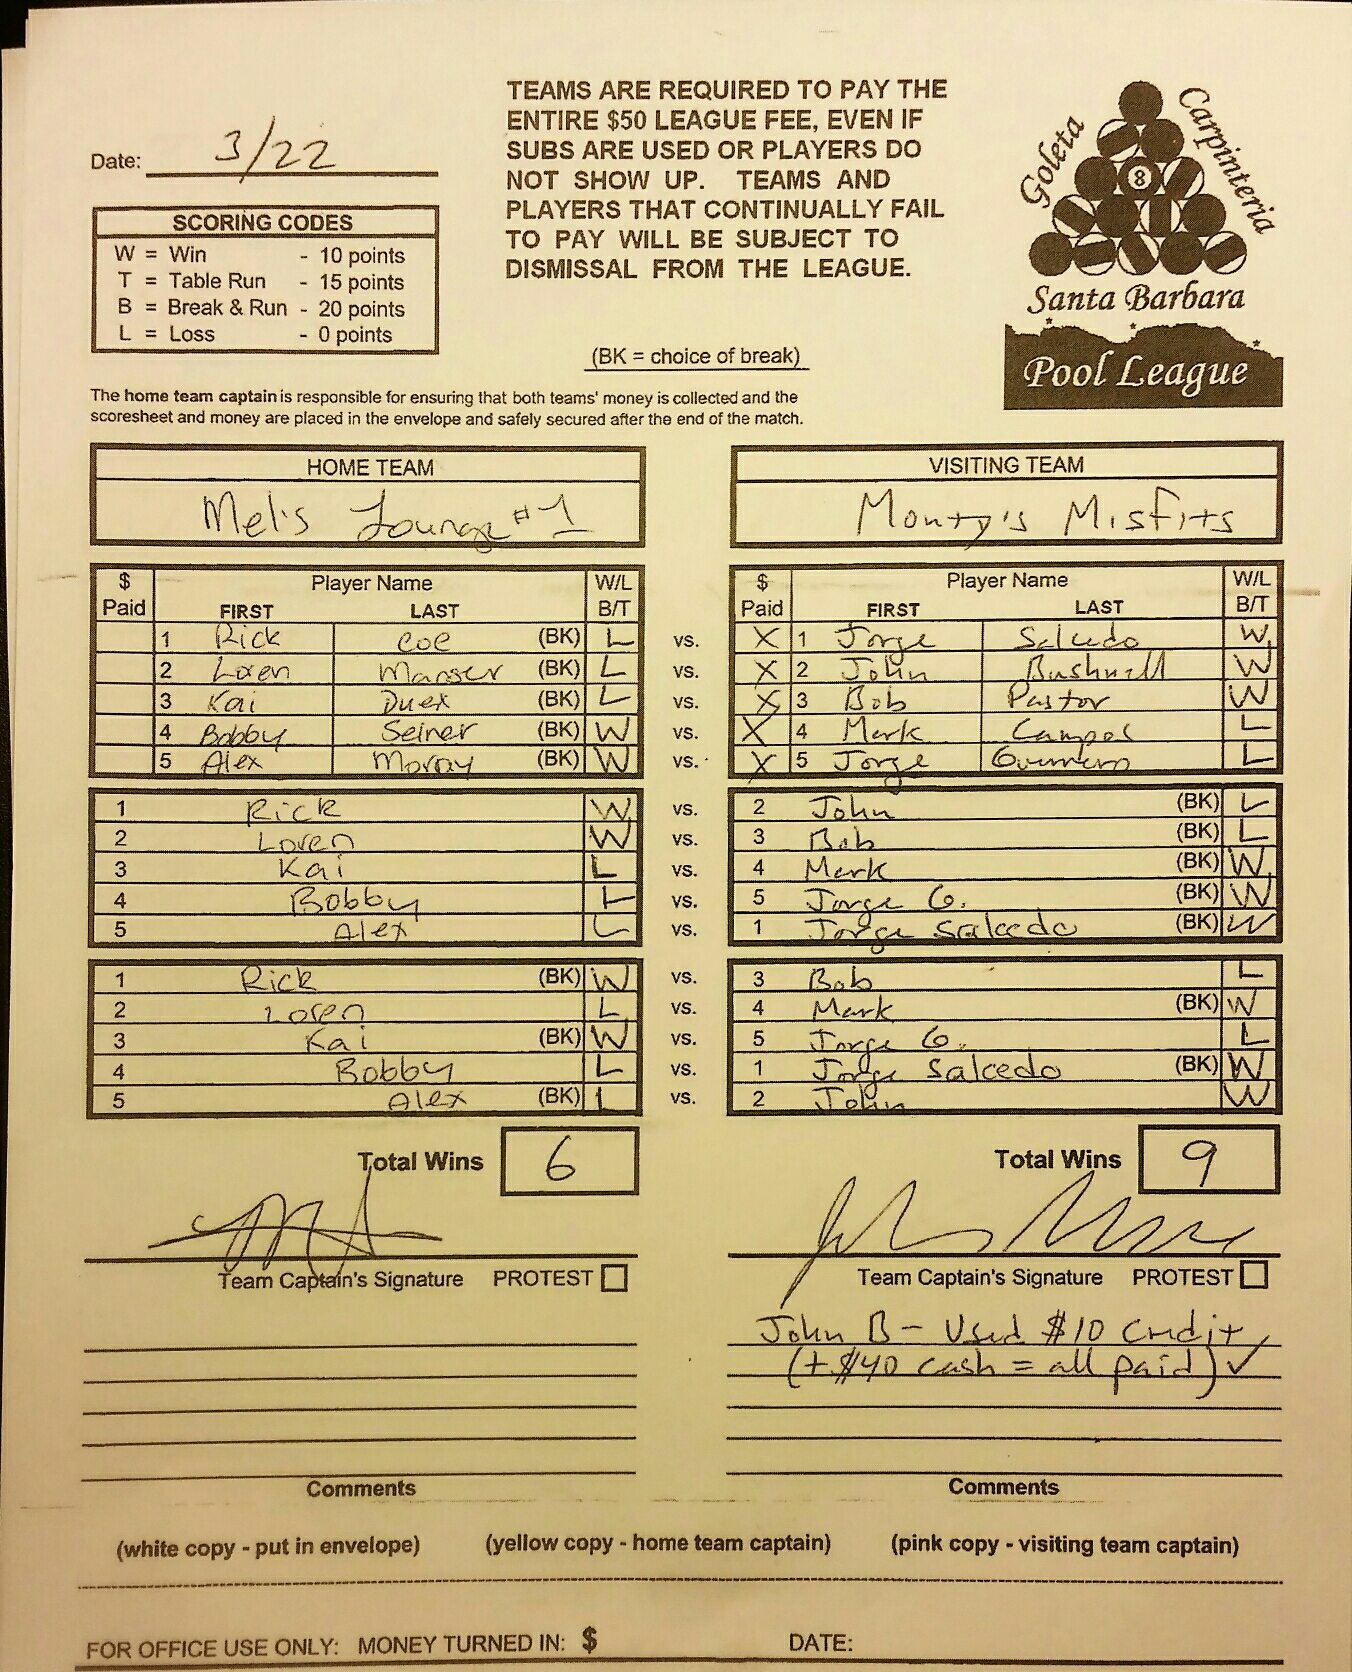 TEAMS ARE REQUIRED TO PAY THE
ENTIRE $50 LEAGUE FEE, EVEN IF
SUBS ARE USED OR PLAYERS DO
NOT SHOW UP. TEAMS AND
PLAYERS THAT CONTINUALLY FAIL
TO PAY WILL BE SUBJECT TO
DISMISSAL FROM THE LEAGUE.
Goleta
Carpinteria
8
Santa Barbara
Pool League
Date: 3/22
SCORING CODES
W = Win - 10 points
T = Table Run - 15 points
B = Break & Run - 20 points
L = Loss - 0 points
(BK = choice of break)
The home team captain is responsible for ensuring that both teams' money is collected and the
scoresheet and money are placed in the envelope and safely secured after the end of the match.
HOME TEAM VISITING TEAM
Mel's Lounge #1 Monty's Misfits
$ Paid Player Name FIRST LAST W/L B/T $ Paid Player Name FIRST LAST W/L B/T
1 Rick Coe (BK) L vs. X 1 Jorge Salcedo W
2 Loren Manser (BK) L vs. X 2 John Bushnell W
3 Kai Duex (BK) L vs. X 3 Bob Pastor W
4 Bobby Seiner (BK) W vs. X 4 Mark Campos L
5 Alex Moray (BK) W vs. X 5 Jorge L
1 Rick W vs. 2 John (BK) L
2 Loren W vs. 3 Bob (BK) L
3 Kai L vs. 4 Mark (BK) W
4 Bobby L vs. 5 Jorge G. (BK) W
5 Alex L vs. 1 Jorge Salcedo (BK) W
1 Rick (BK) W vs. 3 Bob L
2 Loren L vs. 4 Mark (BK) W
3 Kai (BK) W vs. 5 Jorge G. L
4 Bobby L vs. 1 Jorge Salcedo (BK) W
5 Alex (BK) L vs. 2 John W
Total Wins 6 Total Wins 9
Team Captain's Signature PROTEST Team Captain's Signature PROTEST
John B - Used $10 Credit
(+ $40 cash = all paid) ✓
Comments Comments
(white copy - put in envelope) (yellow copy - home team captain) (pink copy - visiting team captain)
FOR OFFICE USE ONLY: MONEY TURNED IN: $ DATE: